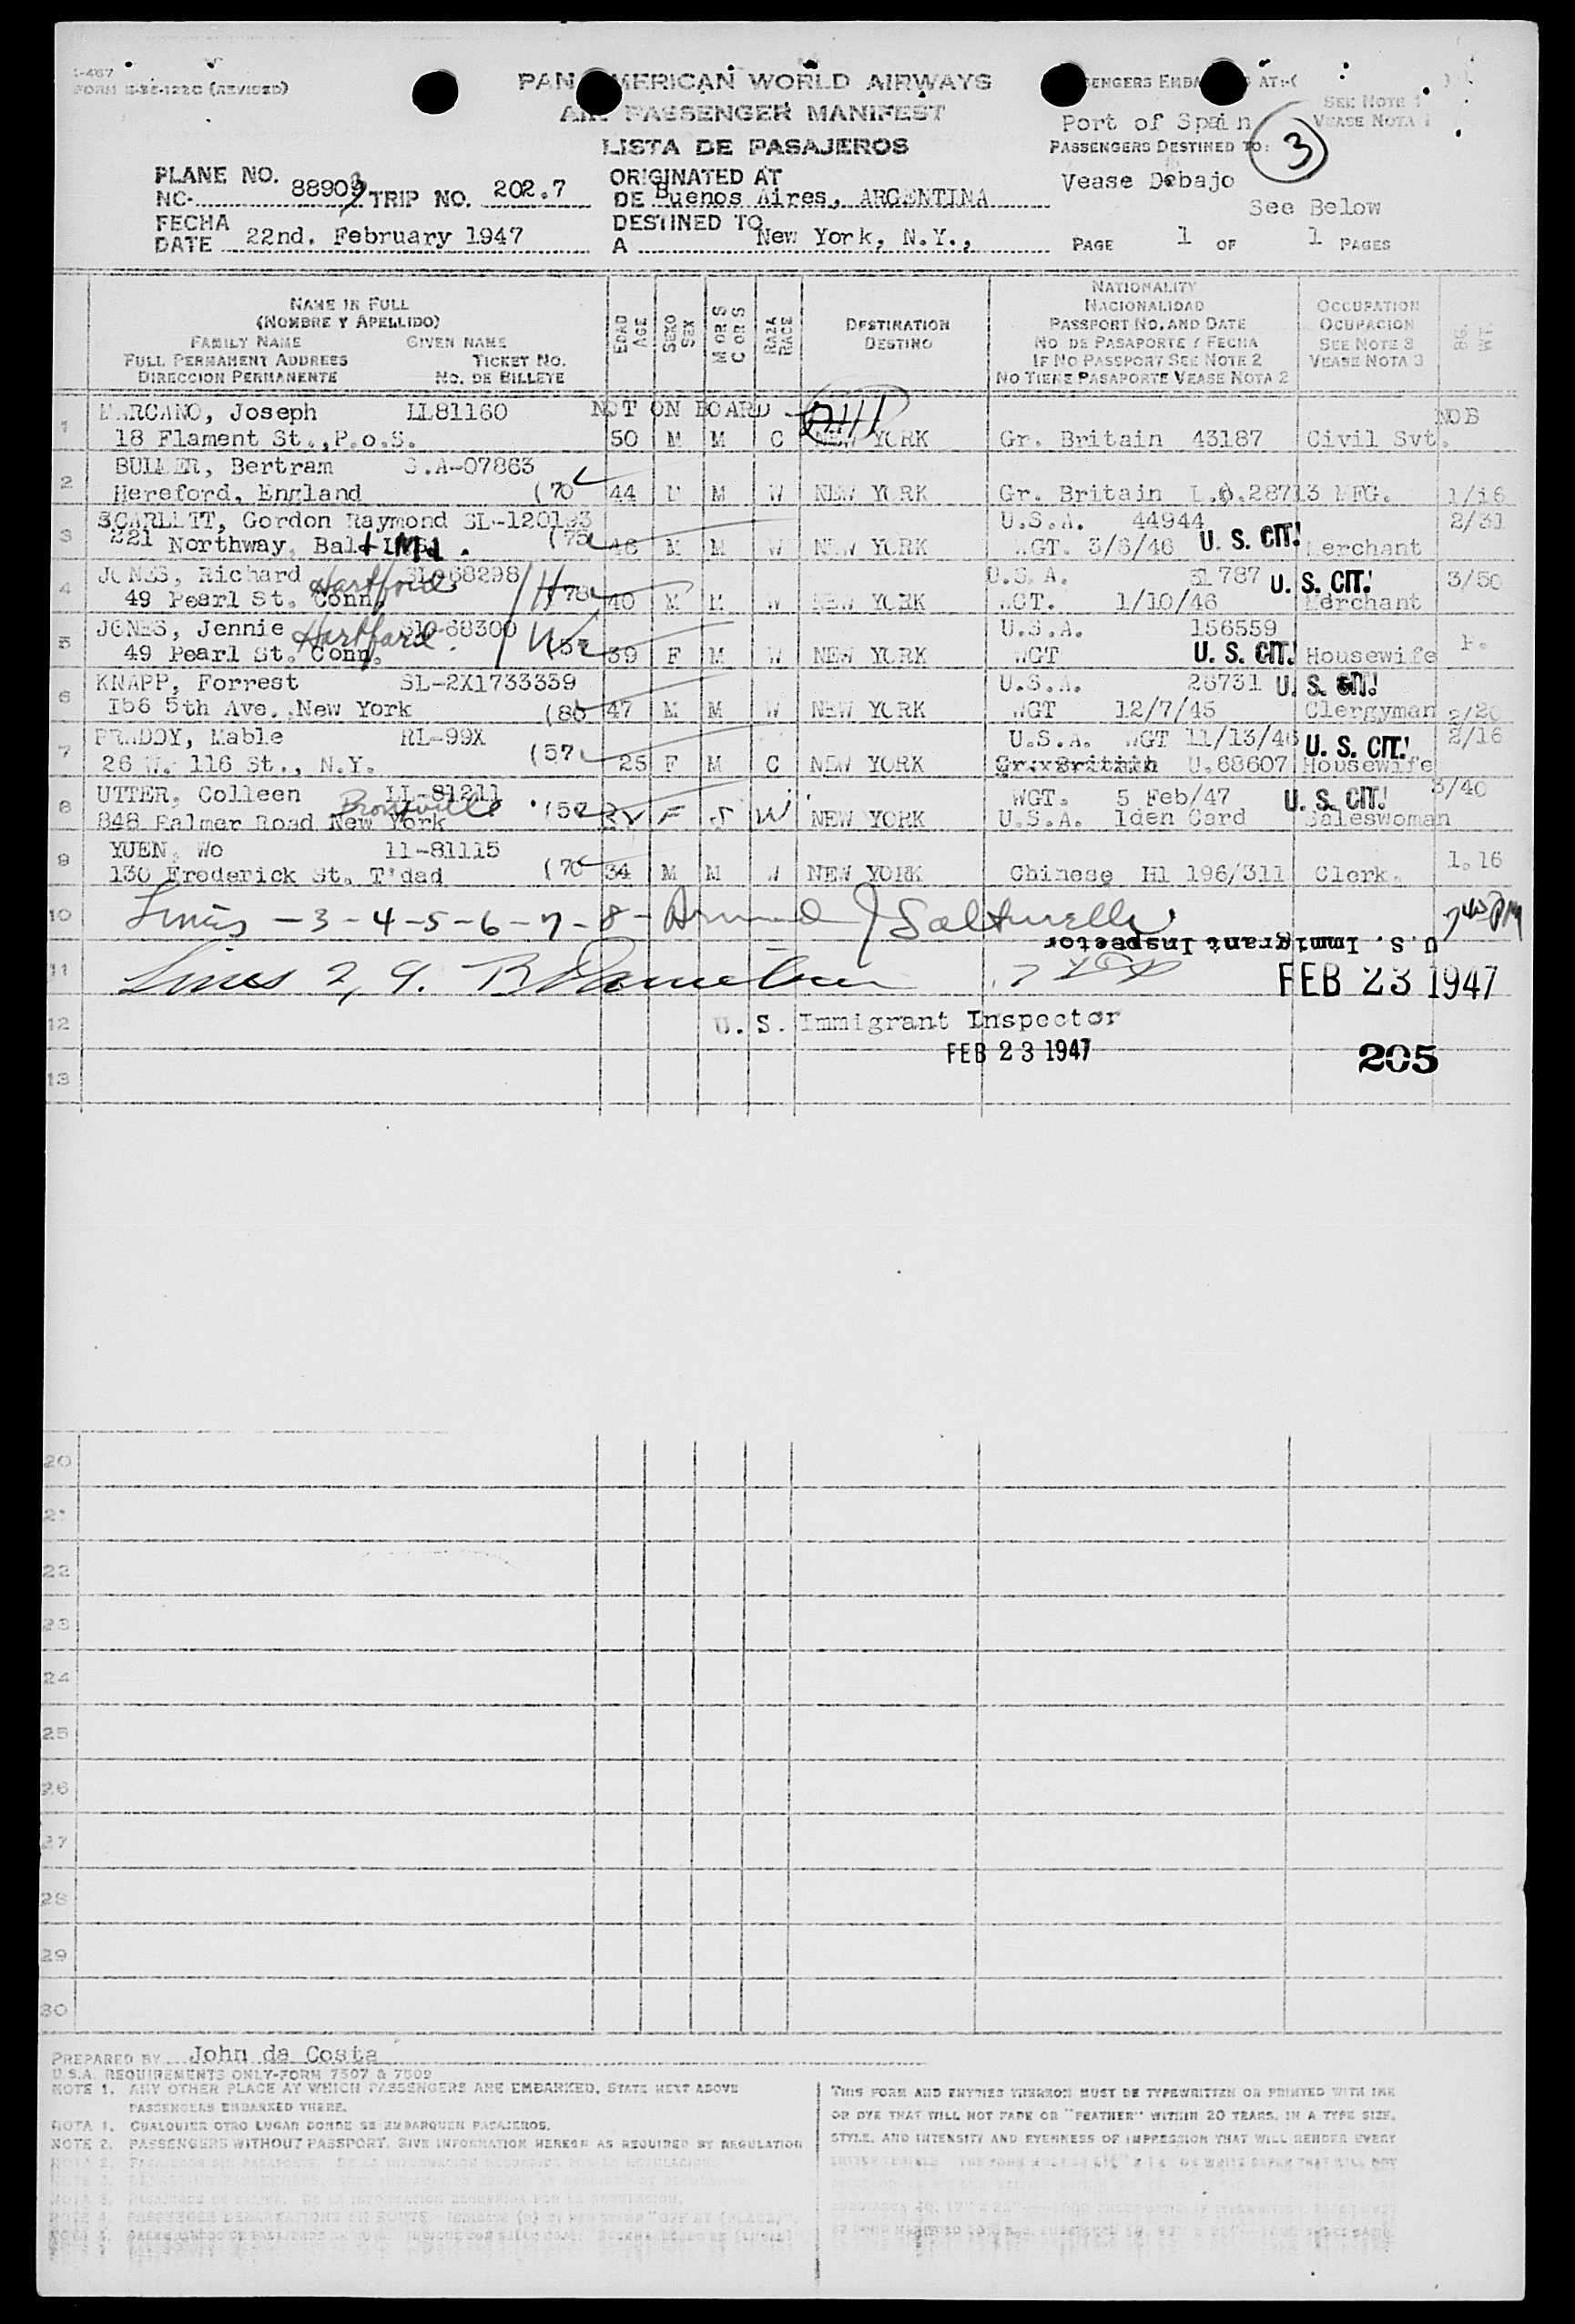 I-467
FORM E-35-122C (REVISED)
PAN AMERICAN WORLD AIRWAYS
AIR PASSENGER MANIFEST
LISTA DE PASAJEROS
PASSENGERS EMBARKING AT:-(
SEE NOTE 1
VEASE NOTA 1
Port of Spain
PASSENGERS DESTINED TO:
3
Vease Debajo
See Below
PLANE NO. NC- 88909 TRIP NO. 202.7
ORIGINATED AT DE Buenos Aires, ARGENTINA
FECHA DATE 22nd. February 1947
DESTINED TO A New York, N.Y.,
PAGE 1 OF 1 PAGES
NAME IN FULL
(NOMBRE Y APELLIDO)
FAMILY NAME GIVEN NAME
FULL PERMANENT ADDRESS TICKET NO.
DIRECCION PERMANENTE NO. DE BILLETE
EDAD AGE
SEXO SEX
M OR S C OR S
RAZA RACE
DESTINATION DESTINO
NATIONALITY
NACIONALIDAD
PASSPORT NO. AND DATE
NO DE PASAPORTE Y FECHA
IF NO PASSPORT SEE NOTE 2
NO TIENE PASAPORTE VEASE NOTA 2
OCCUPATION
OCUPACION
SEE NOTE 3
VEASE NOTA 3
1 MARCANO, Joseph LL81160 NOT ON BOARD NOB
18 Flament St.,P.o.S. 50 M M C NEW YORK Gr. Britain 43187 Civil Svt.
2 BULMER, Bertram S.A-07863
Hereford, England (70 44 M M W NEW YORK Gr. Britain L.O.28713 MFG. 1/16
3 SCARLETT, Gordon Raymond SL-120193 U.S.A. 44944 2/31
221 Northway, Balt Md. (75 46 M M W NEW YORK WGT. 3/6/46 U. S. CIT. Merchant
4 JONES, Richard Hartford S1068298 / H U.S.A. 51787 U. S. CIT. 3/50
49 Pearl St. Conn. (78 40 M M W NEW YORK WGT. 1/10/46 Merchant
5 JONES, Jennie Hartford S10-68300 / W U.S.A. 156559 P.
49 Pearl St. Conn. (52 39 F M W NEW YORK WGT U. S. CIT. Housewife
6 KNAPP, Forrest SL-2X1733359 U.S.A. 26731 U. S. CIT.
156 5th Ave. New York (86 47 M M W NEW YORK WGT 12/7/45 Clergyman 2/20
7 PRADDY, Mable RL-99X (57 U.S.A. WGT 11/13/46 U. S. CIT. 2/16
26 W. 116 St., N.Y. 25 F M C NEW YORK Gr.xBritain U.68607 Housewife
8 UTTER, Colleen LL-81211 (52 WGT. 5 Feb/47 U. S. CIT. 3/40
848 Palmer Road Bronxville New York F S W NEW YORK U.S.A. Iden Card Saleswoman
9 YUEN, Wo 11-81115
130 Frederick St. T'dad (70 34 M M W NEW YORK Chinese H1 196/311 Clerk. 1.16
10 Lines - 3 - 4 - 5 - 6 - 7 - 8 - 7 45 PM
U. S. Immigrant Inspector
11 Lines 2, 9. FEB 23 1947
12 U. S. Immigrant Inspector
FEB 23 1947
205
13
20
21
22
23
24
25
26
27
28
29
30
PREPARED BY John da Costa
U.S.A. REQUIREMENTS ONLY-FORM 7507 & 7509
NOTE 1. ANY OTHER PLACE AT WHICH PASSENGERS ARE EMBARKED, STATE NEXT ABOVE
PASSENGERS EMBARKED THERE.
NOTA 1. CUALQUIER OTRO LUGAR DONDE SE EMBARQUEN PASAJEROS.
NOTE 2. PASSENGERS WITHOUT PASSPORT, GIVE INFORMATION HEREON AS REQUIRED BY REGULATION
THIS FORM AND ENTRIES THEREON MUST BE TYPEWRITTEN OR PRINTED WITH INK
OR DYE THAT WILL NOT FADE OR "FEATHER" WITHIN 20 YEARS, IN A TYPE SIZE,
STYLE, AND INTENSITY AND EVENNESS OF IMPRESSION THAT WILL RENDER EVERY